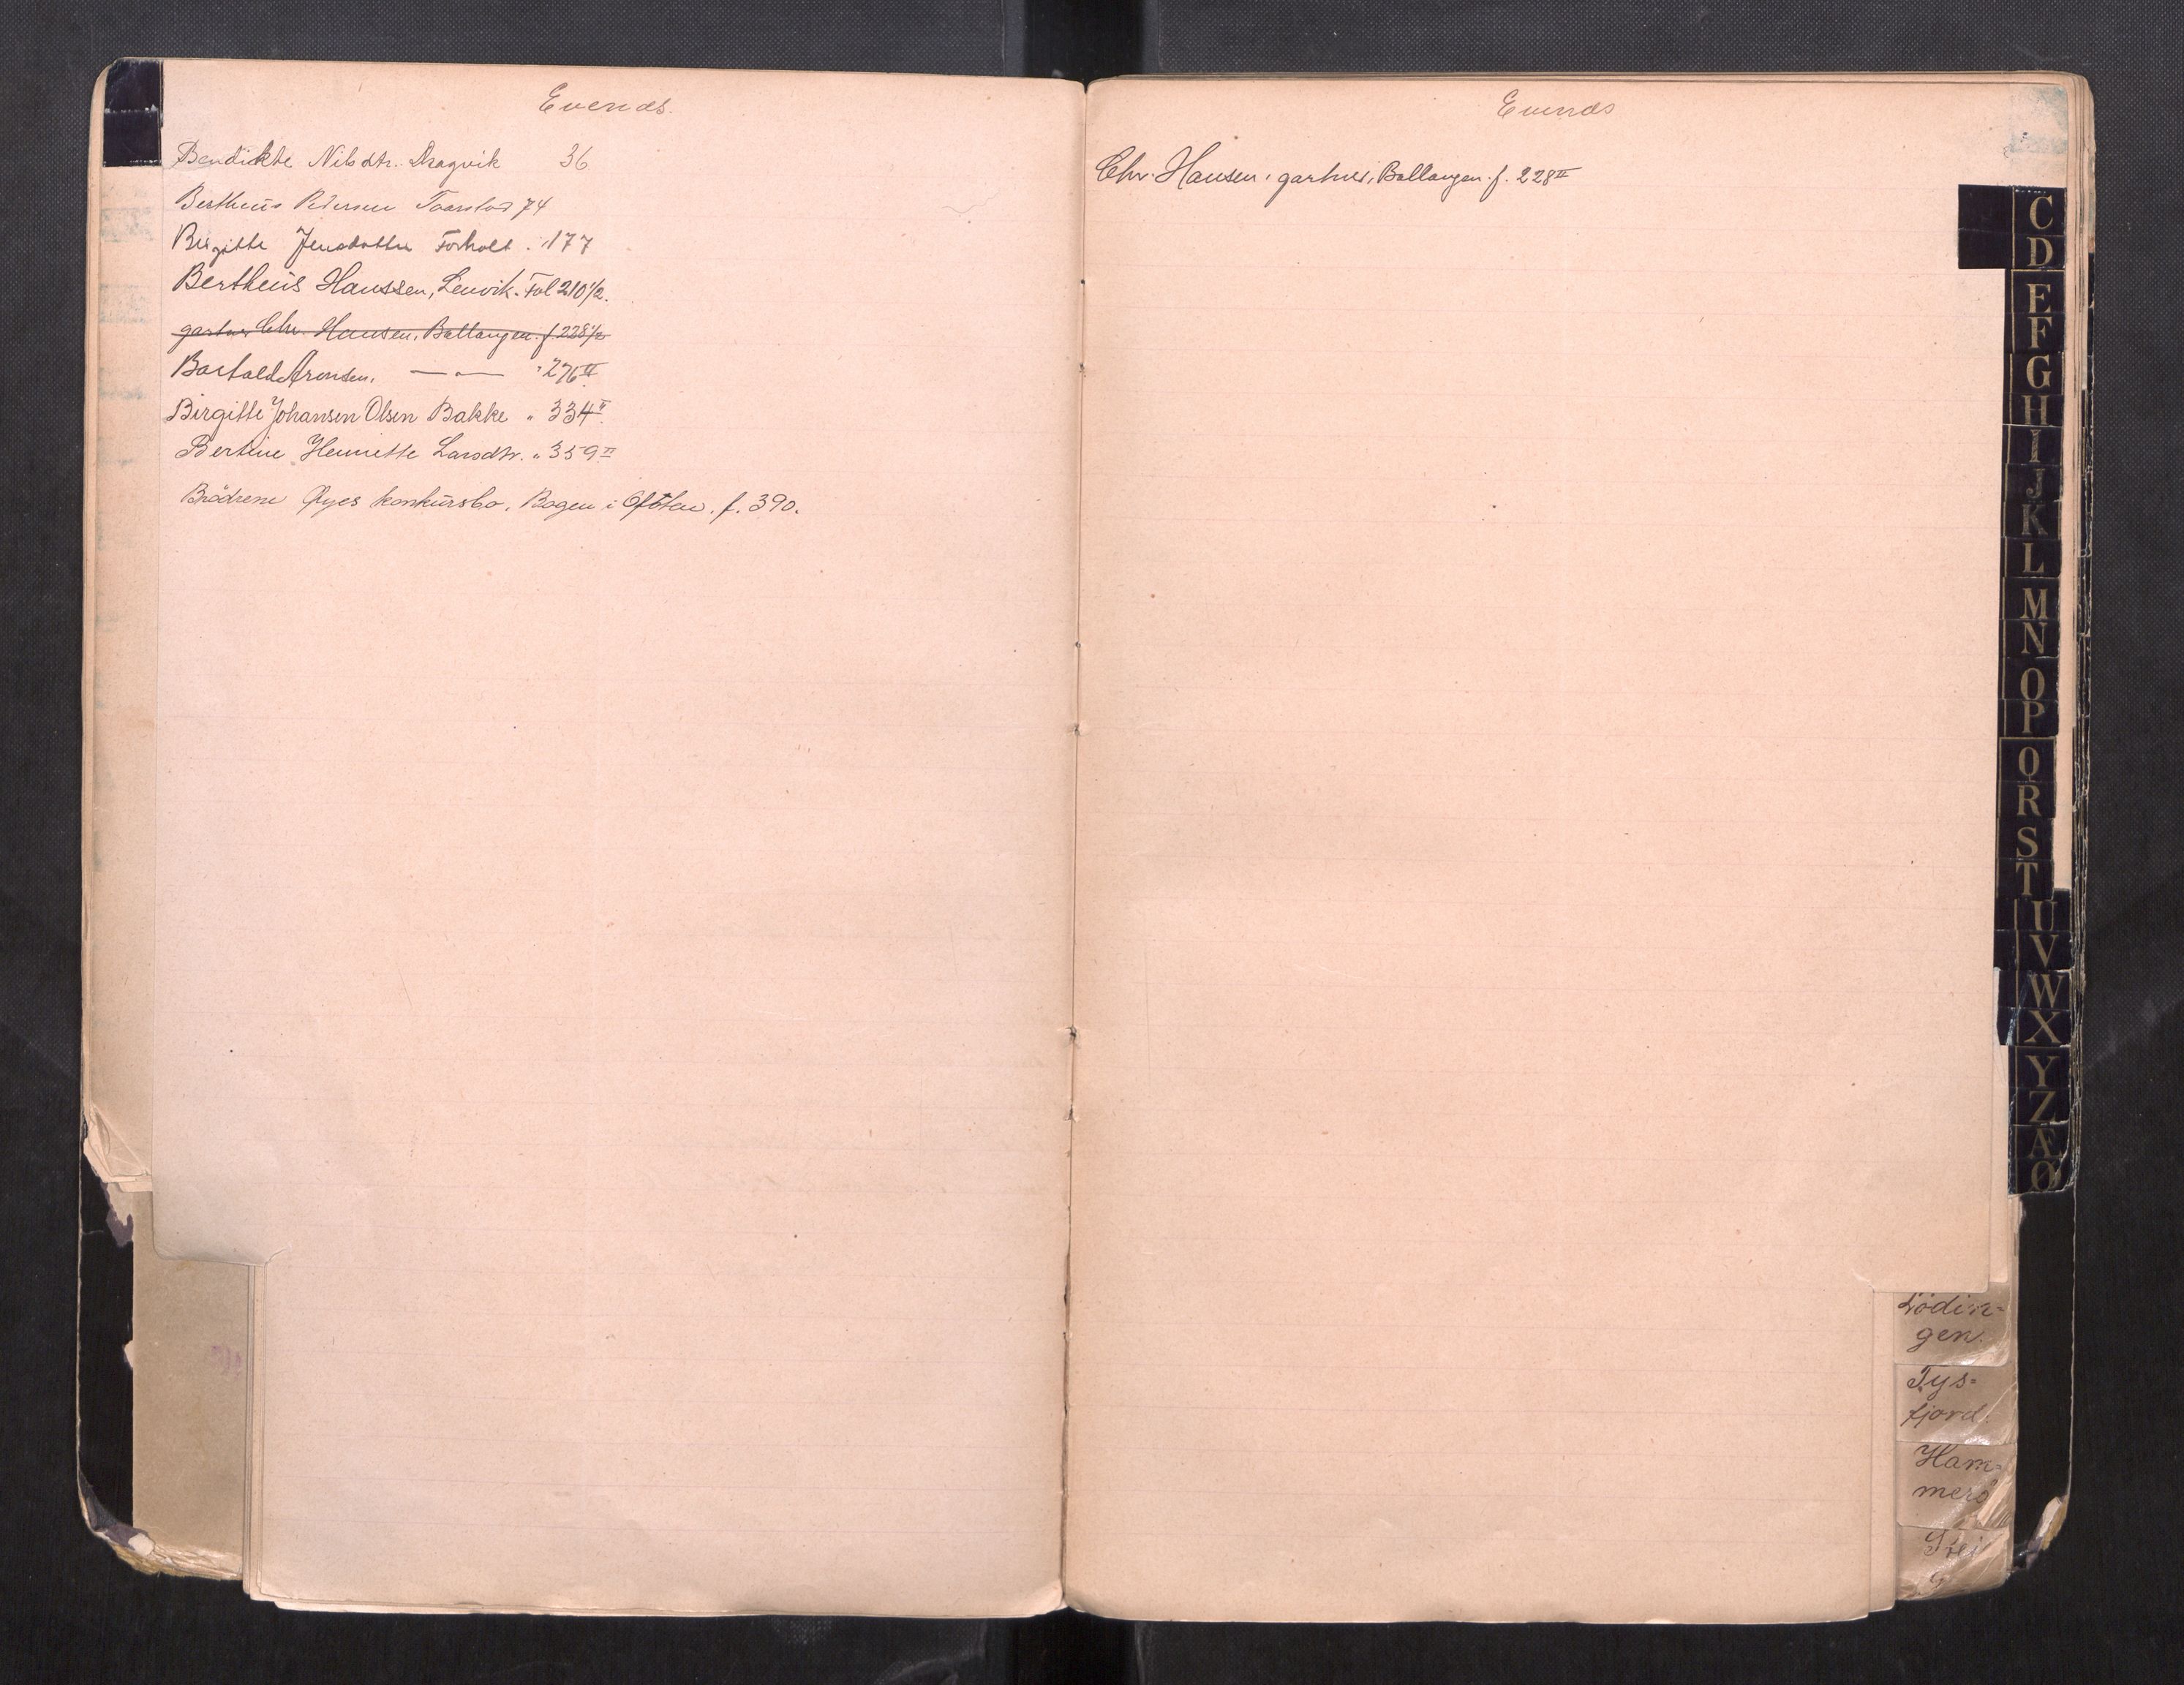 Evenæs.
Bendikte Nilsdtr. Dragvik 36
Bertheus Pedersen Taarstad 74
Birgitte Jensdatter Forholt . 177
Bertheus Hanssen, Lenvik. Fol 210 1/2.
gartner Chr. Hansen, Ballangen. f 228 1/2
Bartald Arentsen. — " — " 276 II
Birgitte Johansen Olsen Bakke " 334 II
Bertine Henriette Larsdtr. " 359 II
Brödrene Øyes konkursbo, Bogen i Ofoten. f. 390.
Evenæs
Chr. Hansen, gartner, Ballangen. f. 228 II
C
D
E
F
G
H
I
J
K
L
M
N
O
P
Q
R
S
T
U
V
W
X
Y
Z
Æ
Ø
Lödin=
gen.
Tys=
fjord.
Ham=
merö